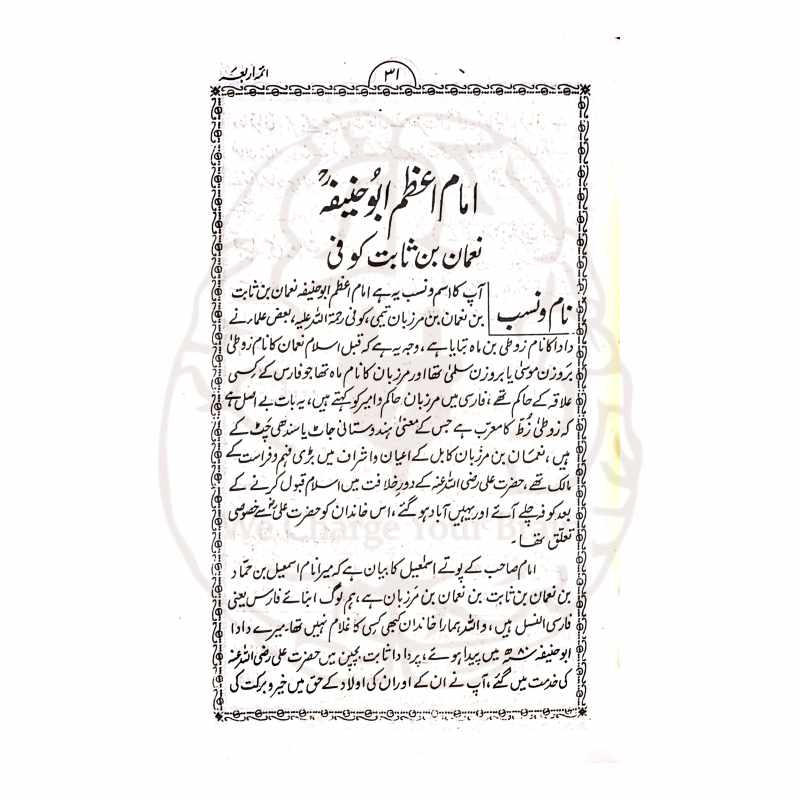 ائمہ اربعہ
۳۱
امام اعظم ابو حنیفہؒ
نعمان بن ثابت کوفی
نام و نسب
آپ کا اسم و نسب یہ ہے امام اعظم ابوحنیفہ نعمان بن ثابت
بن نعمان بن مرزبان تیمی، کوفی رحمۃ اللہ علیہ، بعض علماء نے
دادا کا نام زوطیٰ بن ماہ بتایا ہے، وجہ یہ ہے کہ قبل اسلام نعمان کا نام زوطیٰ
بروزن موسیٰ یا بروزن سلمیٰ تھا اور مرزبان کا نام ماہ تھا جو فارس کے کسی
علاقہ کے حاکم تھے، فارسی میں مرزبان حاکم و امیر کو کہتے ہیں، یہ بات بے اصل ہے
کہ زوطیٰ زُط کا معرب ہے جس کے معنیٰ ہندوستانی جاٹ یا سندھی جٹ کے
ہیں، نعمان بن مرزبان کابل کے اعیان و اشراف میں بڑی فہم و فراست کے
مالک تھے، حضرت علی رضی اللہ عنہ کے دور خلافت میں اسلام قبول کرنے کے
بعد کوفہ چلے آئے اور یہیں آباد ہو گئے، اس خاندان کو حضرت علیؓ سے خصوصی
تعلق تھا۔
امام صاحب کے پوتے اسمٰعیل کا بیان ہے کہ میرا نام اسمعیل بن حمّاد
بن نعمان بن ثابت بن نعمان بن مرزبان ہے، ہم لوگ ابنائے فارس یعنی
فارسی النسل ہیں، واللہ ہمارا خاندان کبھی کسی کا غلام نہیں تھا۔ میرے دادا
ابوحنیفہ ۸۰ھ میں پیدا ہوئے، پردادا ثابت بچپن میں حضرت علی رضی اللہ عنہ
کی خدمت میں گئے، آپ نے ان کے اور ان کی اولاد کے حق میں خیر و برکت کی
We Charge Your Brain